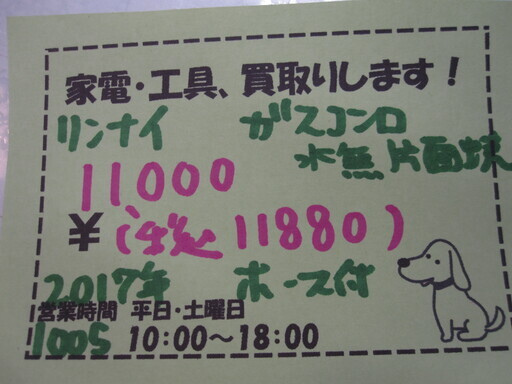 家電・工具、買取りします！
リンナイ ガスコンロ
水無片面焼
11000
¥ (税込 11880)
2017年 ホース付
営業時間 平日・土曜日
1005 10:00～18:00